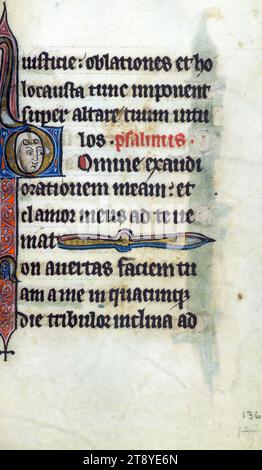 iusticie: oblationes et ho
locausta tunc imponent
super altare tuum uitu
los · psalmus ·
Domine exaudi
orationem meam: et
clamor meus ad te ue
niat
Non auertas faciem tu
am a me in quacunq
die tribulor inclina ad
136
alamy
Image ID: 2T8YE6N
www.alamy.com